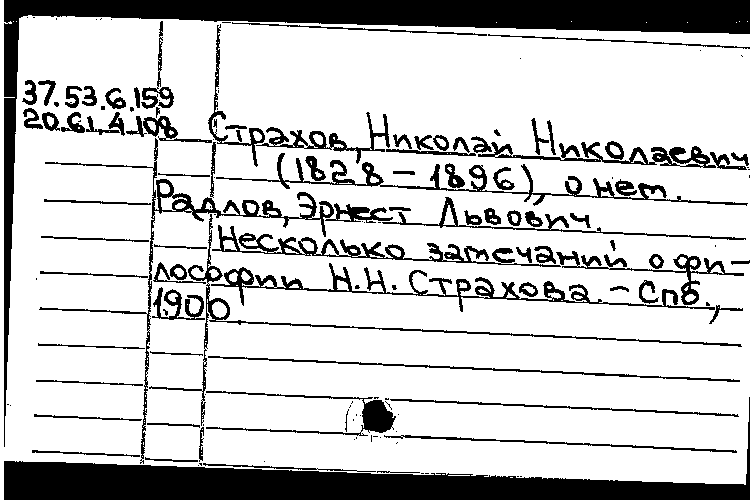 37.53.6.159
20.61.4.108
Страхов, Николай Николаевич
(1828 – 1896), о нем.
Радлов, Эрнест Львович.
Несколько замечаний о фи-
лософии Н.Н. Страхова. – Спб.,
1900.